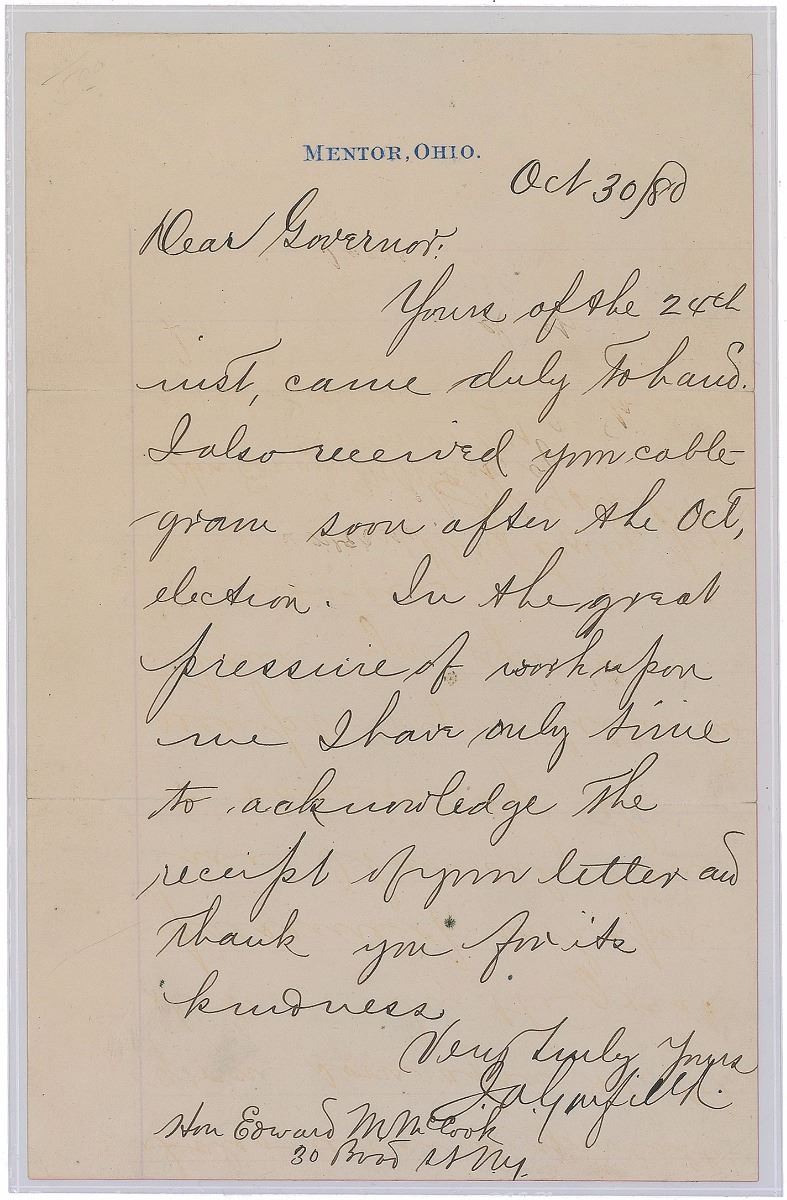 MENTOR, OHIO.
Oct 30/80
Dear Governor:
Yours of the 24th
inst, came duly to hand.
I also received your cable-
gram soon after the Oct,
election. In the great
pressure of work upon
me I have only time
to acknowledge the
receipt of your letter and
thank you for its
kindness
Very truly yours
J A Garfield.
Hon Edward M McCook
30 Broad St NY.